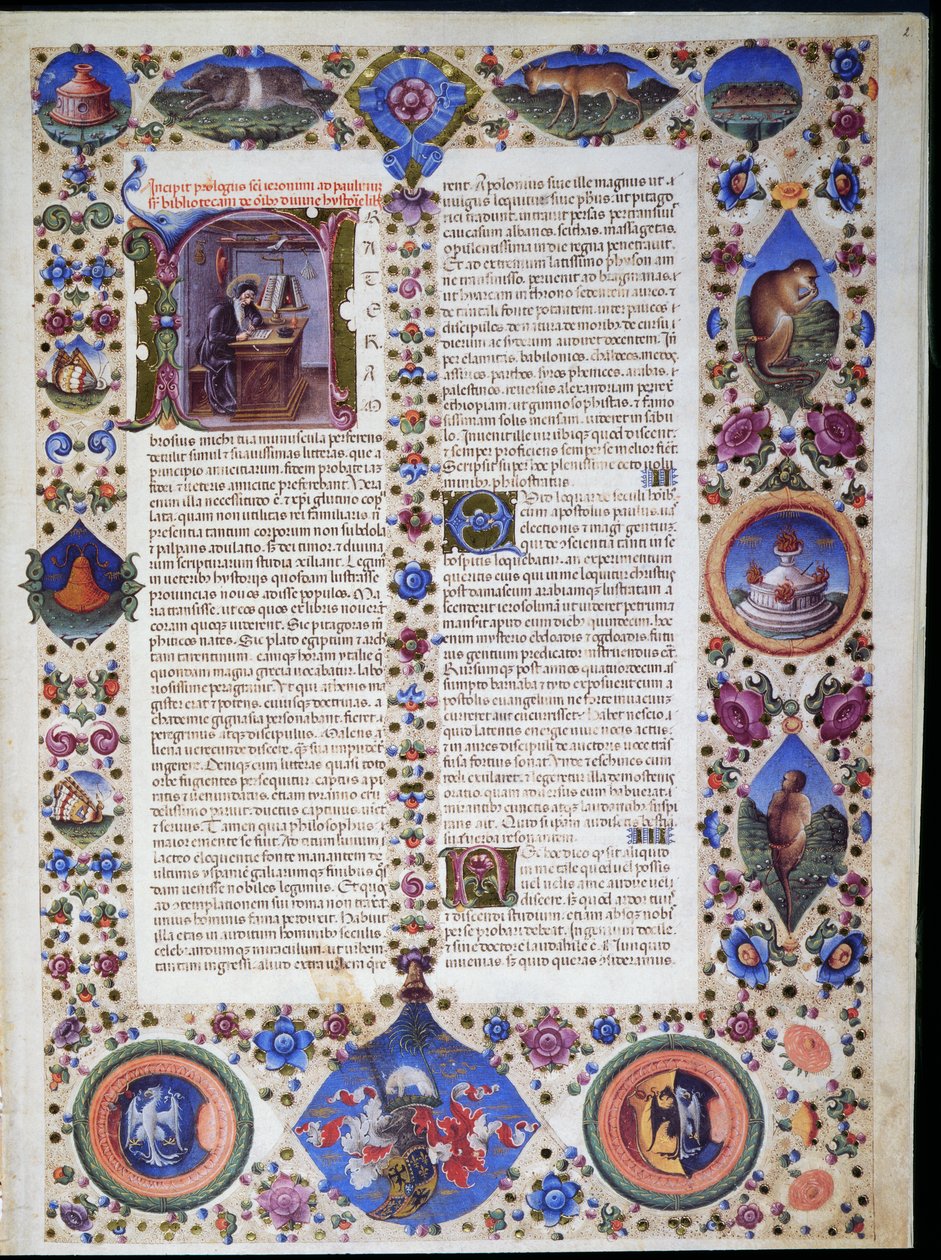 2
Incipit prologus sci ieronimi ad paulinuz
F
RATER AM
brosius michi tua munuscula perferens
detulit simul & suavissimas litteras, que a
principio amicitiarum, fidem probate iaz
fidei & veteris amicitie preferebant. Vera
enim illa necessitudo est & xpi glutino cop
lata, quam non utilitas rei familiaris, non
presentia tantum corporum non subdola
& palpans adulatio, sed dei timor, & divina
rum scripturarum studia conciliant. Legimus
in veteribus hystorijs quosdam lustrasse
provincias novos adisse populos. Ma
ria transisse, ut eos quos ex libris noverant
coram quoque viderent. Sic pitagoras me
phiticos vates. Sic plato egiptum & arch
itam tarentinum, eamque horam ytalie que
quondam magna grecia vocabatur, labo
riosissime peragravit, Ut qui athenis ma
gister erat & potens, cuiusque doctrinas, a
chademie gignasia personabant, fieret
peregrinus atque discipulus, Malens a
liena verecunde discere, quam sua impudenter
ingerere. Denique cum litteras quasi toto
orbe fugientes persequitur, captus a py
ratis & venundatus, etiam tyranno cru
delissimo paruit. ductus captivus vinctus
& servus. Tamen quia philosophus,
maior emente se fuit. Ad titum livium
lacteo eloquentie fonte manantem de
ultimis yspanie galiarumque finibus quos
dam venisse nobiles legimus. Et quos
ad contemplationem sui roma non traxerat
unius hominis fama perduxit. Habuit
illa etas in auditum hominibus seculis
celebrandumque miraculum, ut urbem
tantam ingressi, aliud extra urbem quere
rent. Apolonius sive ille magnus ut
vulgus loquitur sive phus, ut pitago
rici tradunt, intravit persas pertransivit
caucasum albanos, scithas, massagetas,
opulentissima indie regna penetravit,
Et ad extremum latissimo physon am
ne transmisso, pervenit ad bragmanas,
ut hyarcam in throno sedentem aureo, &
de tantali fonte potantem, inter paucos
discipulos, de natura de moribus de cursu
dierum ac siderum audiret docentem. Inde
per elamitas, babilonios, chaldeos, medos,
assirios, parthos, syros, phenices, arabas,
palestinos, reversus alexandriam perrexit
ethiopiam, ut gimnosophistas, & famo
sissimam solis mensam, videret in sabu
lo. Invenit ille vir ubique quod disceret,
& semper proficiens semper se melior fieret.
Scripsit super hoc plenissime octo volu
minibus, philostratus.
Quid loquar de seculi hominibus
cum apostolus paulus, vas
electionis & magister gentium,
qui de conscientia tanti in se
hospitis loquebatur. an experimentum
queritis eius qui in me loquitur christus
post damascum arabiamque lustratam a
scenderit ierosolimam ut videret petrum
mansit apud eum diebus quindecim. hoc
enim mysterio ebdoadis & ogdoadis, futu
rus gentium predicator instruendus erat.
Rursumque post annos quatuordecim as
sumpto barnaba & tyto exposuerit cum a
postolis evangelium ne forte in vacuum
curreret aut cucurisset. Habet nescio
quid latentis energie vive vocis actus,
& in aures discipuli de auctoris voce trans
fusa fortius sonat. Unde & eschines cum
rodi exularet, & legeretur illa demostenis
oratio, quam adversus eum habuerat,
mirantibus cunctis atque laudantibus suspi
rans ait. Quid si ipsam audissetis bestiam
sua verba resonantem.
Nec hoc dico quod sit aliquid
in me tale quod vel possis
vel velis a me audire vel
discere, sed quod ardor tuus
& discendi studium, etiam absque nobis
per se probari debeat. Ingenium docile,
& sine doctore laudabile est. Non quid
invenias, sed quid queras consideramus.